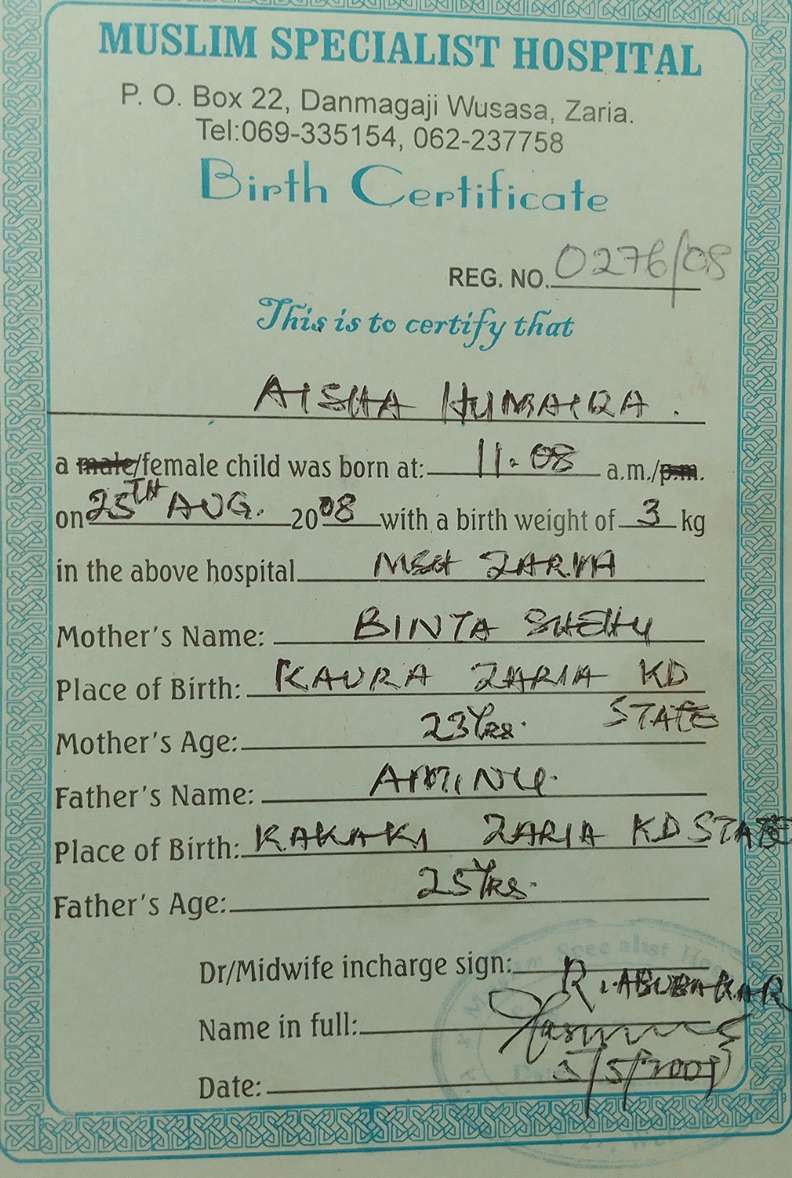 MUSLIM SPECIALIST HOSPITAL
P. O. Box 22, Danmagaji Wusasa, Zaria.
Tel:069-335154, 062-237758
Birth Certificate
REG. NO. 0276/08
This is to certify that
AISHA HUMAIRA.
a male/female child was born at: 11.08 a.m./p.m.
on 25TH AUG. 2008 with a birth weight of 3 kg
in the above hospital MSH ZARIA
Mother's Name: BINTA SHEHU
Place of Birth: KAURA ZARIA KD
STATE
Mother's Age: 23Yrs.
Father's Name: AMINU.
Place of Birth: KAKAKI ZARIA KD STATE
Father's Age: 25Yrs.
Dr/Midwife incharge sign: R. ABUBAKAR
Name in full:
Date: 5/5/2009